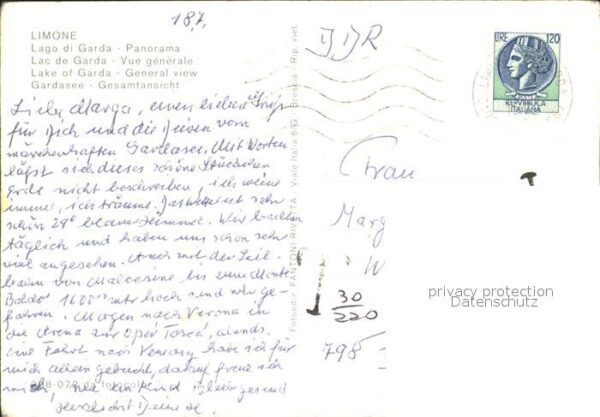 18.7.
LIMONE
Lago di Garda - Panorama
Lac de Garda - Vue générale
Lake of Garda - General view
Gardasee - Gesamtansicht
DDR
LIRE 120
REPVBBLICA
ITALIANA
Liebe Marga, einen lieben Gruß
für Dich und die Deinen vom
märchenhaften Gardasee. Mit Worten
läßt sich dieses schöne Stückchen
Erde nicht beschreiben, ich meine
immer, ich träume. Das Wetter ist sehr
schön 29° blauer Himmel. Wir baden
täglich und haben uns schon sehr
viel angesehen. Auch mit der Seil-
bahn von Malcesine bis zum Monte
Baldo 1600 mtr hoch sind wir ge-
fahren. Morgen nach Verona in
die Arena zur Oper Tosca, abends.
Eine Fahrt nach Venedig habe ich für
mich allein gebucht, darauf freue ich
mich, wie ein Kind. Bleib gesund
Herzlichst Deine
Fotoed. FANTONI - RIVOLTELLA - Viale Italia - Brescia - Rip. viet.
Frau
Marg
W
30
220
798
privacy protection
Datenschutz